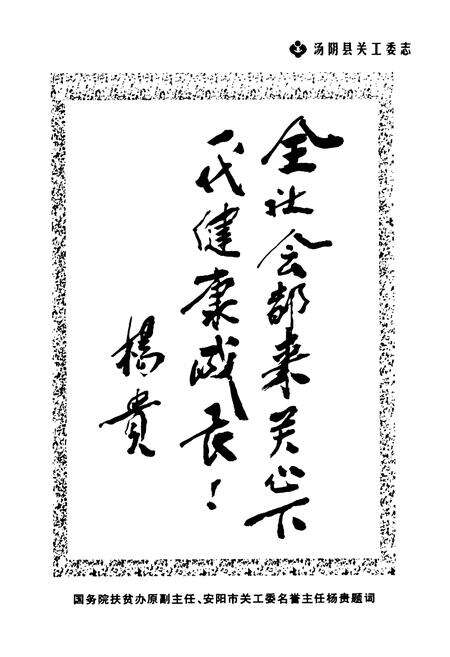 汤阴县关工委志
全社会都来关心下
一代健康成长！
楊貴
国务院扶贫办原副主任、安阳市关工委名誉主任杨贵题词